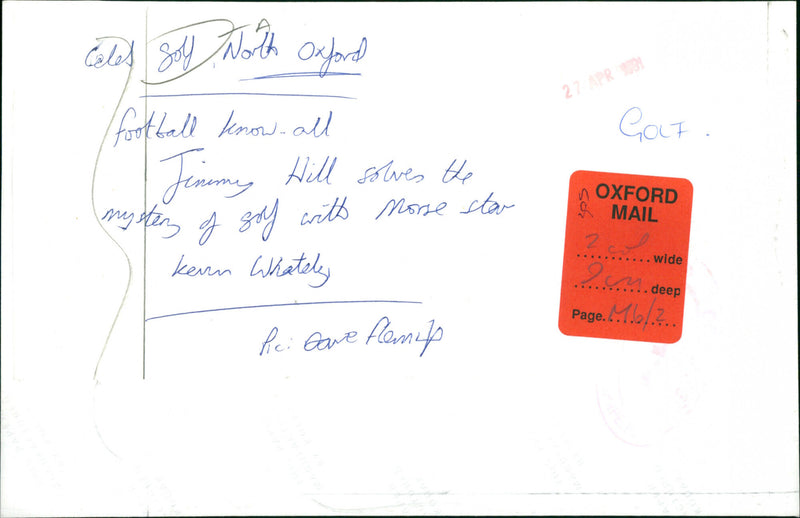 Celeb golf North Oxford
27 APR 1991
football know-all
GOLF.
Jimmy Hill solves the
mystery of golf with Morse star
Kevin Whately
Pic: Dave Fleming
OXFORD
MAIL
2 col wide
9cm deep
Page. M6/2